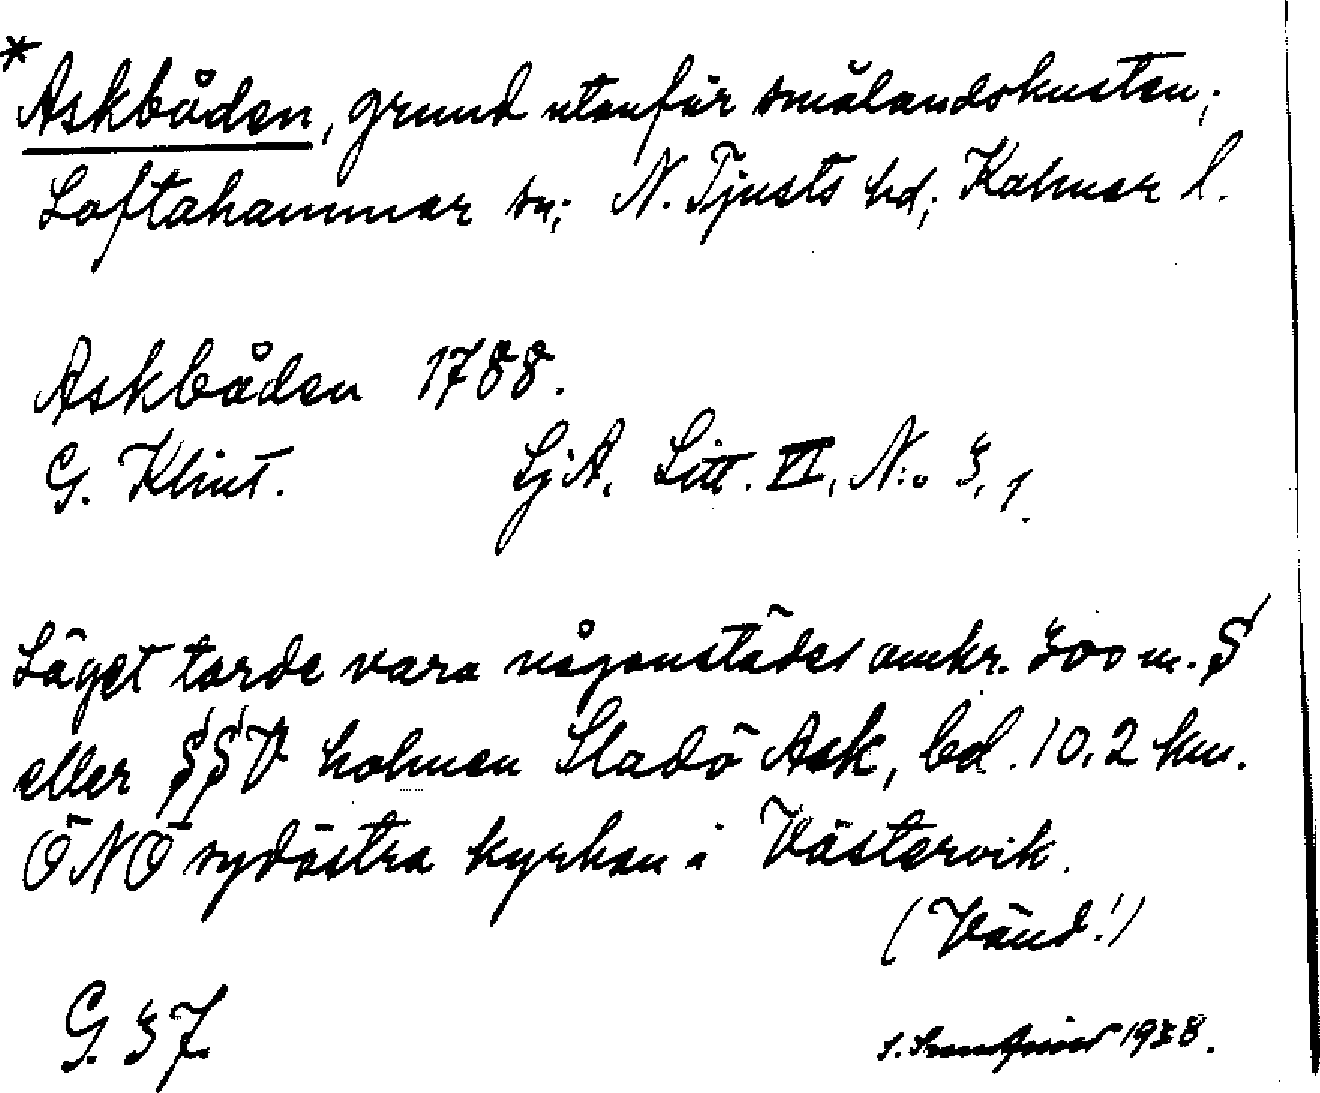 *Askbåden, grund utanför smålandskusten;
Loftahammar sn; N. Tjusts hd; Kalmar l.
Askbåden 1788.
G. Klint. SjA. Litt. VI, N:o 3, 1.
Läget torde vara någonstädes omkr. 300 m. S
eller SSV holmen Sladö Ask, bel. 10,2 km.
ÖNÖ sydöstra kyrkan i Västervik.
(Vänd!)
G. 37 1938.